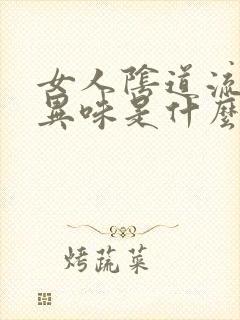 女人陰道流
異味是什麼
烤蔬菜